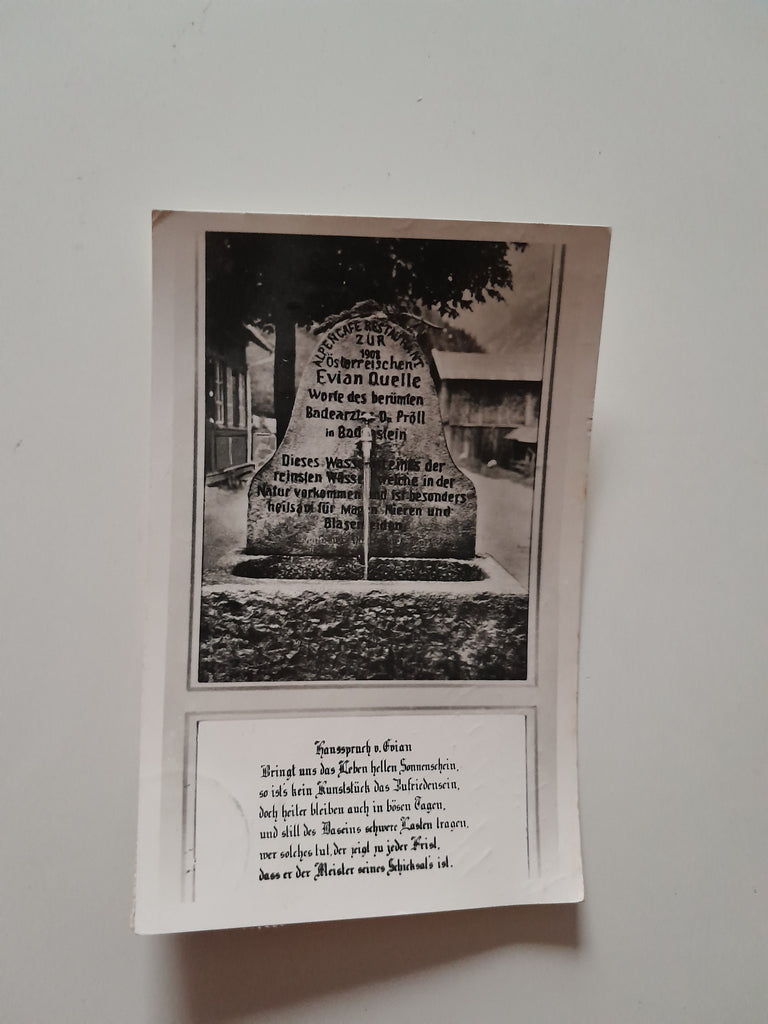 ALPENCAFE RESTAURANT
ZUR
1908
Österreichischen
Evian Quelle
Worte des berümten
Badearztes Dr Pröll
in Badgastein
Dieses Wasser der
reinsten Wässer welche in der
Natur vorkommen und ist besonders
heilsam für Magen Nieren und
Blasenleiden
Hausspruch v. Evian
Bringt uns das Leben hellen Sonnenschein,
so ist's kein Kunststück das Zufriedensein,
doch heiter bleiben auch in bösen Tagen,
und still des Daseins schwere Lasten tragen,
wer solches tut, der zeigt zu jeder Frist,
dass er der Meister seines Schicksal's ist.